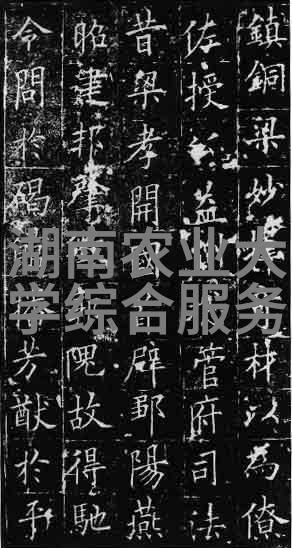 鎮銅梁妙材以為僚
佐授公益州管府司法
昔梁孝開國辟鄒陽燕
昭建邦肇隗故得馳
令問於碣播芳猷於平
湖南农业大
学综合服务